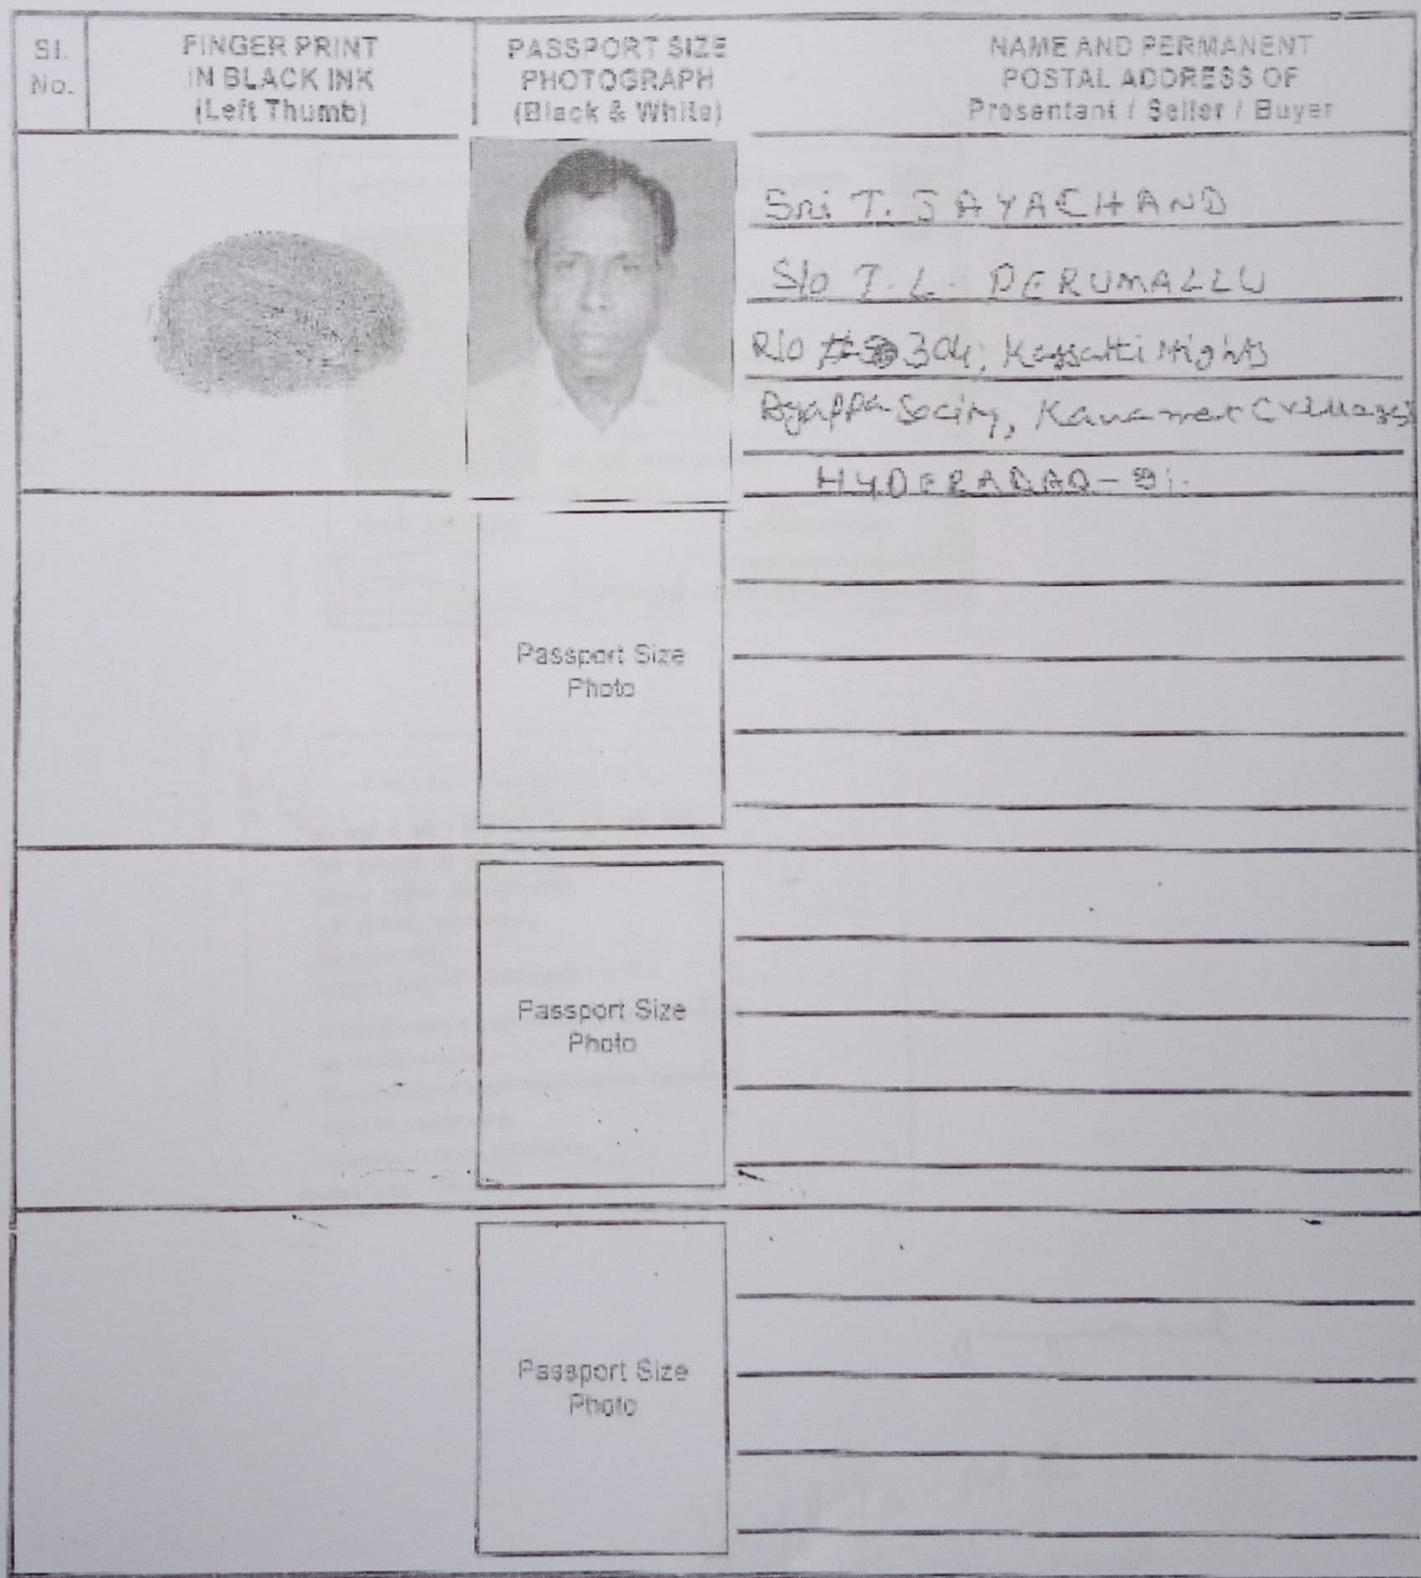 Sl.
No.
FINGER PRINT
IN BLACK INK
(Left Thumb)
PASSPORT SIZE
PHOTOGRAPH
(Black & White)
NAME AND PERMANENT
POSTAL ADDRESS OF
Presentant / Seller / Buyer
Sri T. JAYACHAND
S/o T. L. PERUMALLU
R/o # 304, Hights
Ayappa Socity,
HYDERABAD - 81.
Passport Size
Photo
Passport Size
Photo
Passport Size
Photo